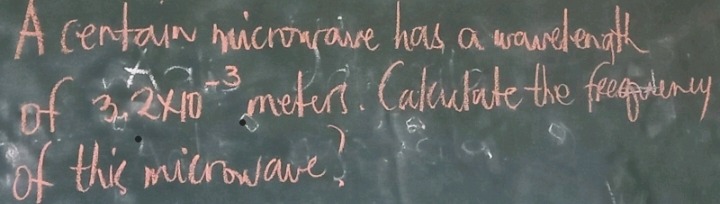 A certain microwave has a wavelength
of 3.2×10⁻³ meters. Calculate the frequency
of this microwave?